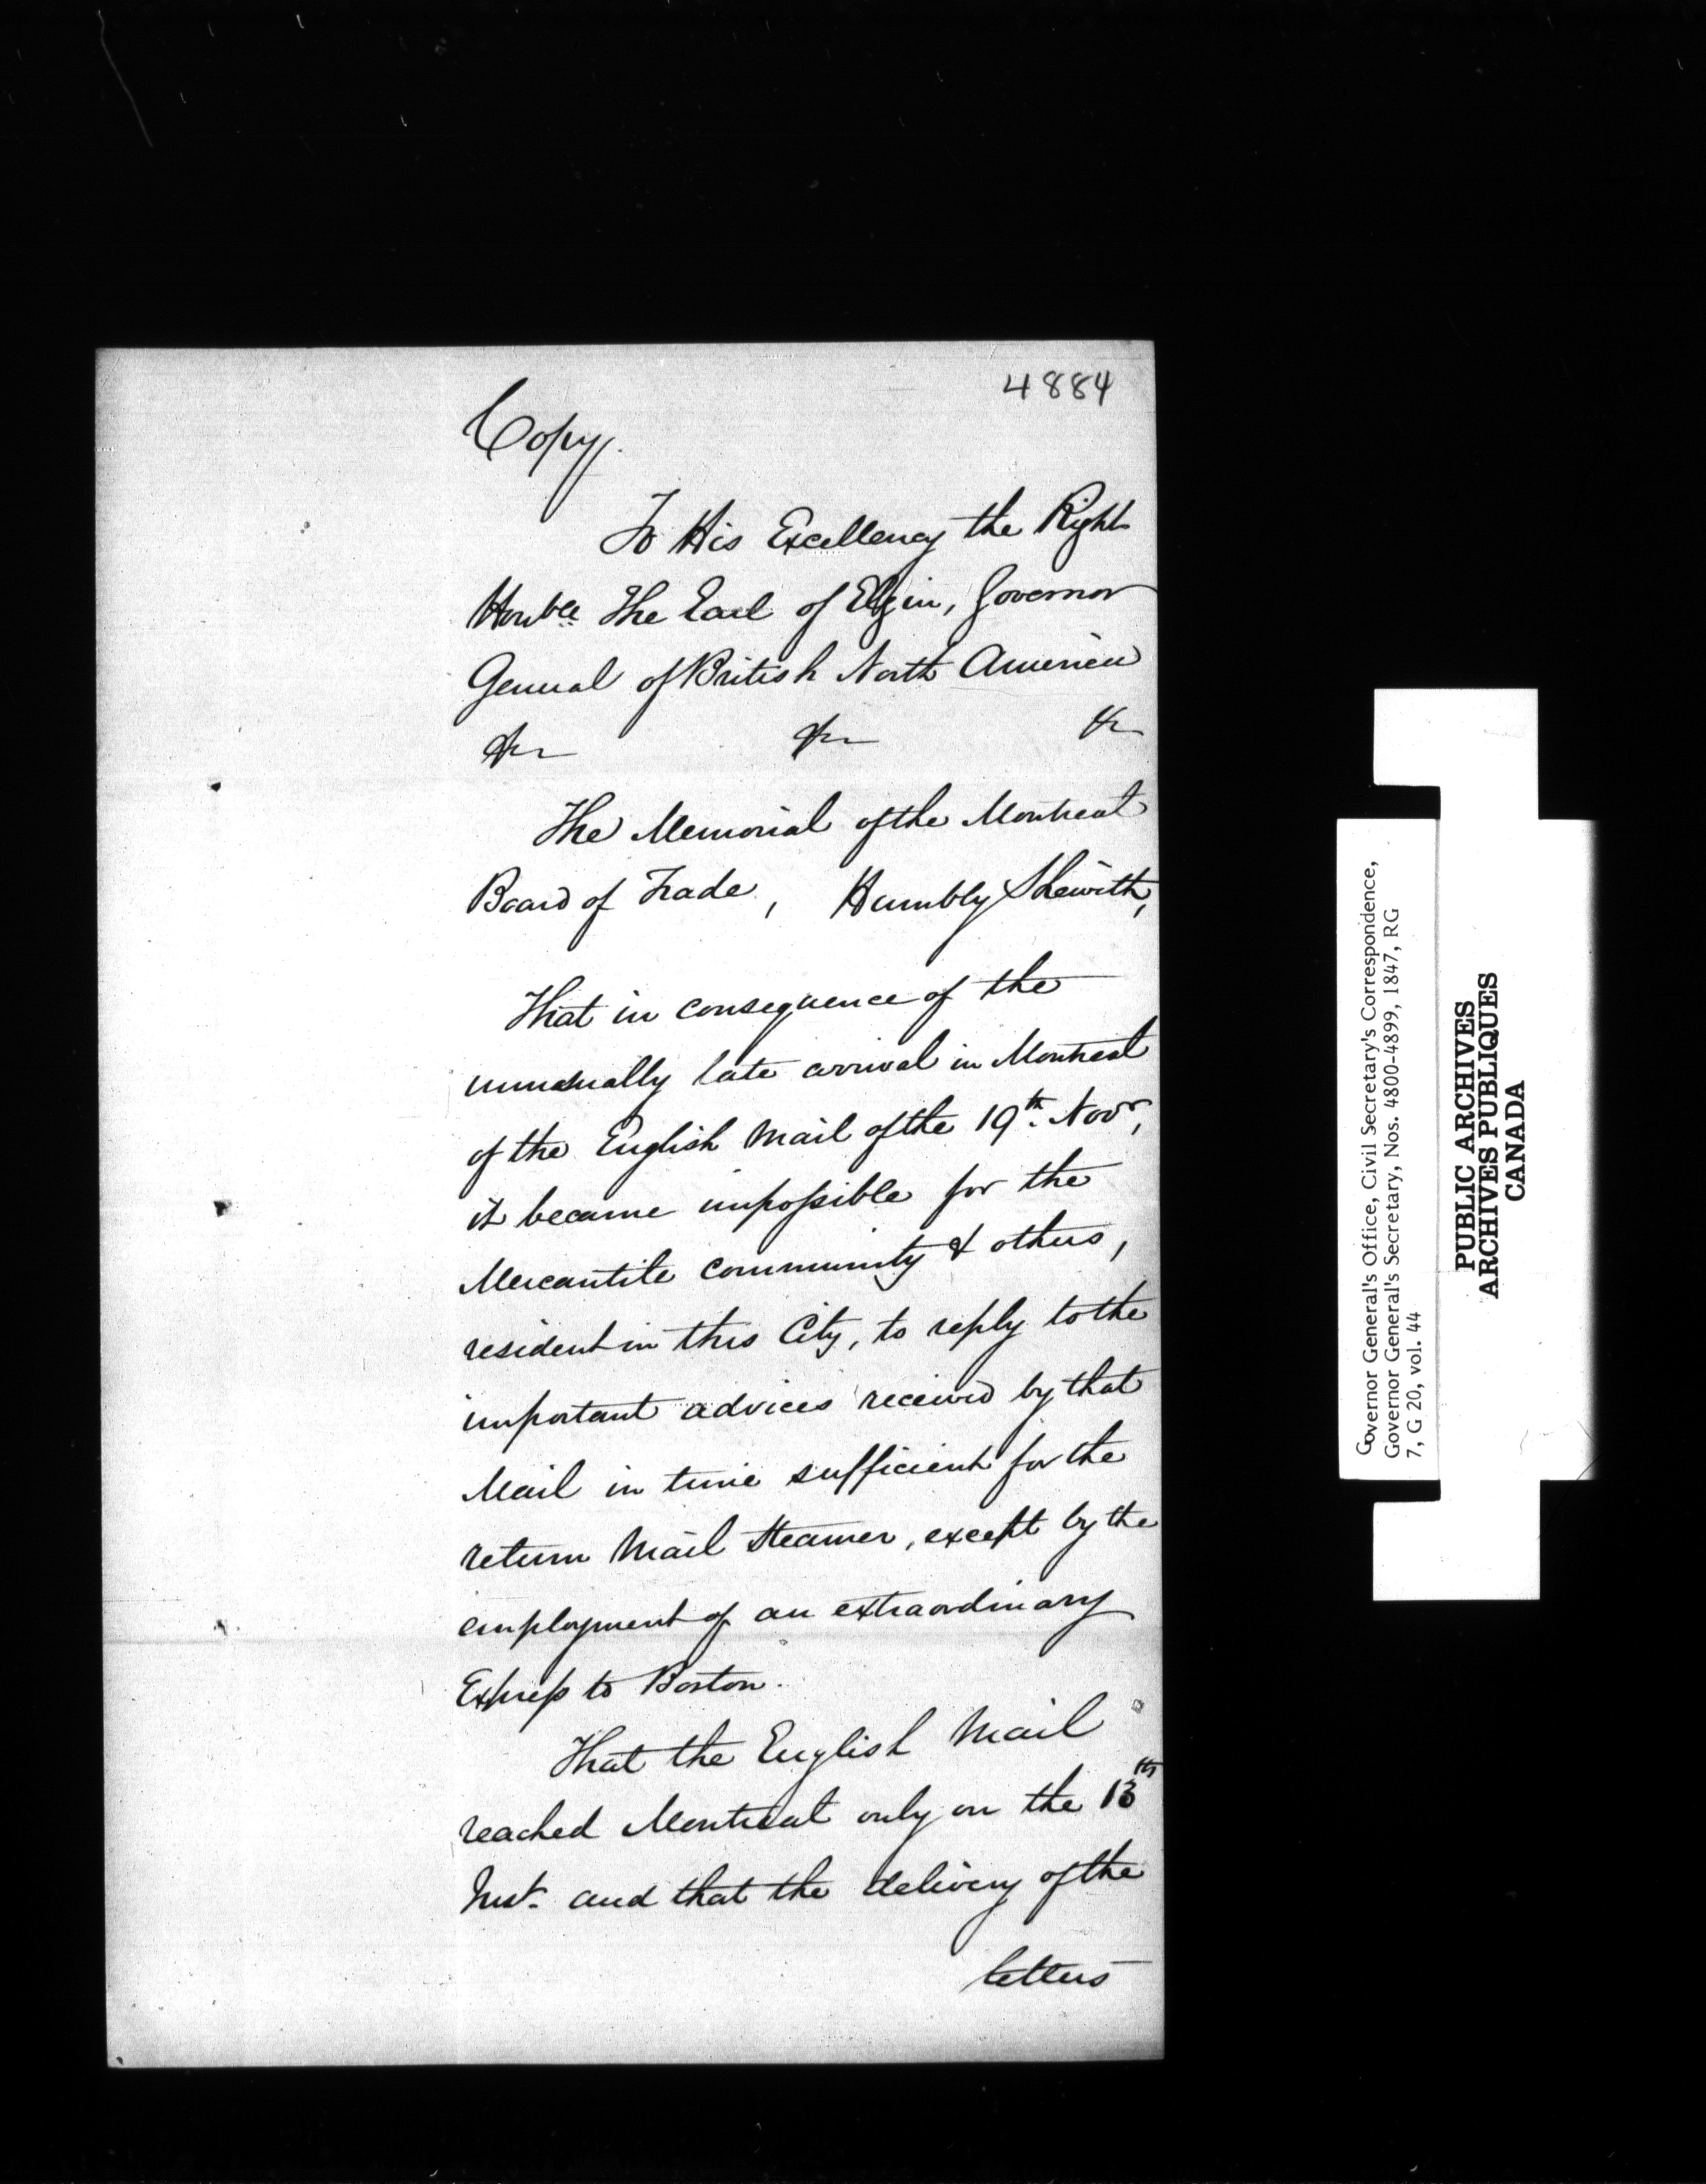 4884
Copy.
To His Excellency the Right
Honble. The Earl of Elgin, Governor
General of British North America
&c &c &c
The Memorial of the Montreal
Board of Trade, Humbly Sheweth,
That in consequence of the
unusually late arrival in Montreal
of the English Mail of the 19th. Novr,
it became impossible for the
Mercantile community & others,
resident in this City, to reply to the
important advices received by that
Mail in time sufficient for the
return Mail Steamer, except by the
employment of an extraordinary
Express to Boston.
That the English Mail
reached Montreal only on the 13th
Inst. and that the delivery of the
letters
Governor General's Office, Civil Secretary's Correspondence,
Governor General's Secretary, Nos. 4800-4899, 1847, RG
7, G 20, vol. 44
PUBLIC ARCHIVES
ARCHIVES PUBLIQUES
CANADA